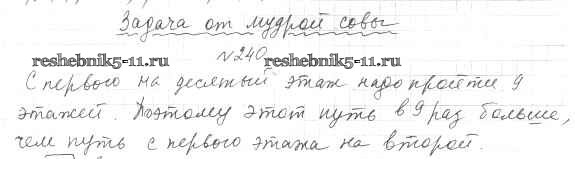 Задача от мудрой совы
reshebnik5-11.ru №240 reshebnik5-11.ru
С первого на десятый этаж надо пройти 9
этажей. Поэтому этот путь в 9 раз больше,
чем путь с первого этажа на второй.